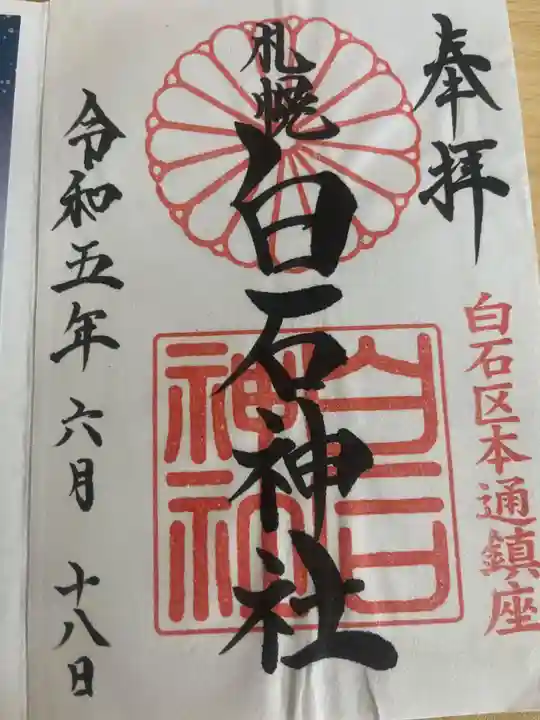 奉拝
白石区本通鎮座
札幌
白石神社
白石
神社
令和五年六月十八日